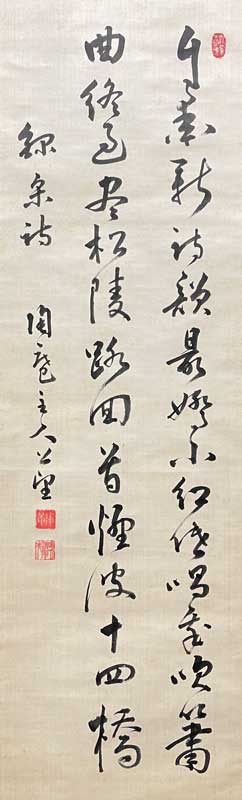 自喜新詩韻最嬌小紅低唱我吹簫
曲終過盡松陵路回首煙波十四橋
録宋詩
陶庵主人公望